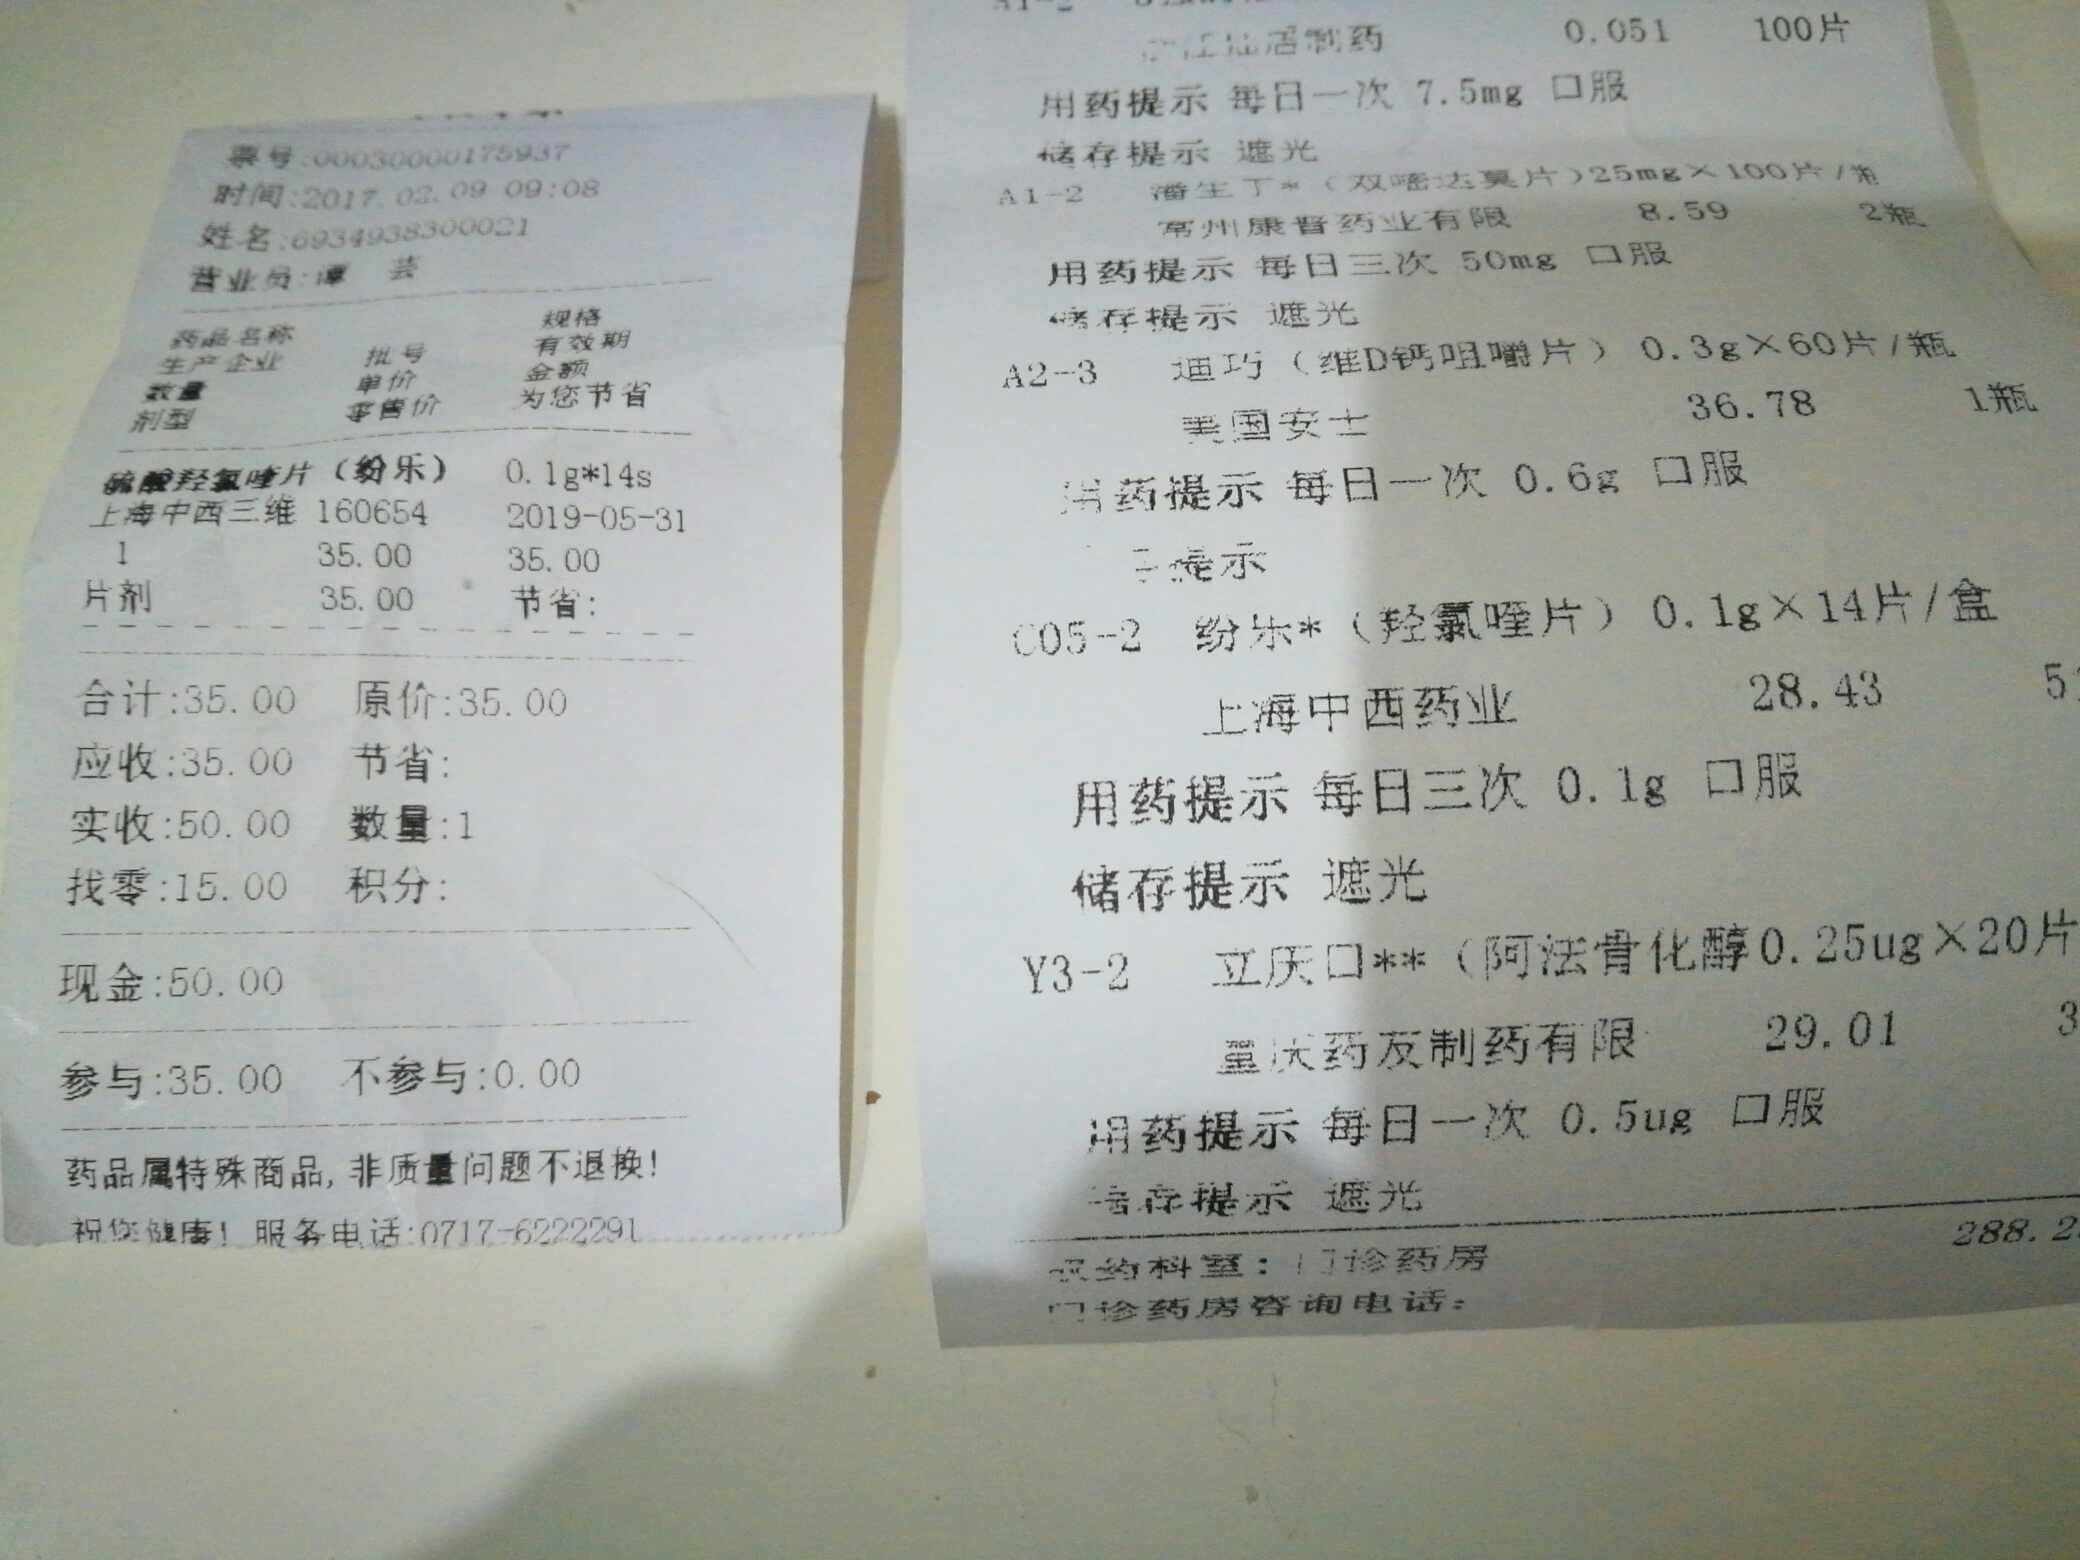 票号:00030000175937
时间:2017.02.09 09:08
姓名:6934938300021
营业员:谭 芸
药品名称 规格
生产企业 批号 有效期
数量 单价 金额
剂型 零售价 为您节省
硫酸羟氯喹片（纷乐） 0.1g*14s
上海中西三维 160654 2019-05-31
1 35.00 35.00
片剂 35.00 节省:
合计:35.00 原价:35.00
应收:35.00 节省:
实收:50.00 数量:1
找零:15.00 积分:
现金:50.00
参与:35.00 不参与:0.00
药品属特殊商品,非质量问题不退换!
祝您健康! 服务电话:0717-6222291
A1-2
制药 0.051 100片
用药提示 每日一次 7.5mg 口服
储存提示 遮光
A1-2 潘生丁*（双嘧达莫片)25mg×100片/瓶
常州康普药业有限 8.59 2瓶
用药提示 每日三次 50mg 口服
储存提示 遮光
A2-3 迪巧（维D钙咀嚼片）0.3g×60片/瓶
美国安士 36.78 1瓶
用药提示 每日一次 0.6g 口服
提示
C05-2 纷乐*（羟氯喹片）0.1g×14片/盒
上海中西药业 28.43 5
用药提示 每日三次 0.1g 口服
储存提示 遮光
Y3-2 立庆口**（阿法骨化醇0.25ug×20片
重庆药友制药有限 29.01 3
用药提示 每日一次 0.5ug 口服
储存提示 遮光
288.2
取药科室：门诊药房
门诊药房咨询电话: